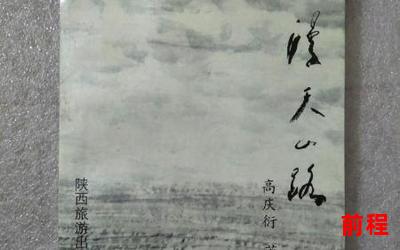 天山路
高庆衍 著
陕西旅游出
前程